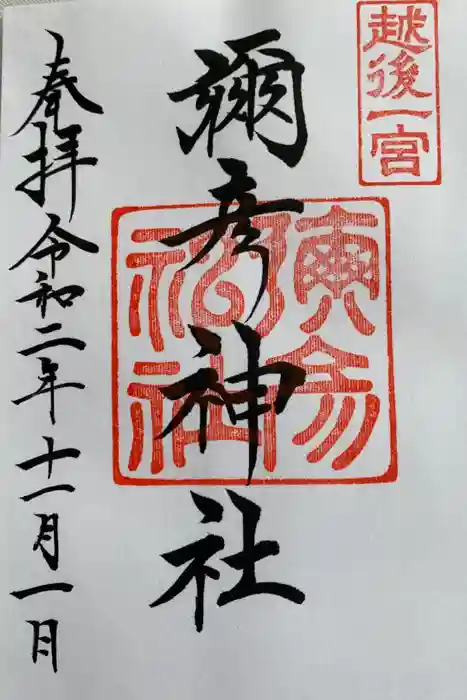 越後一宮
彌彦神社
奉拝 令和二年十一月一日